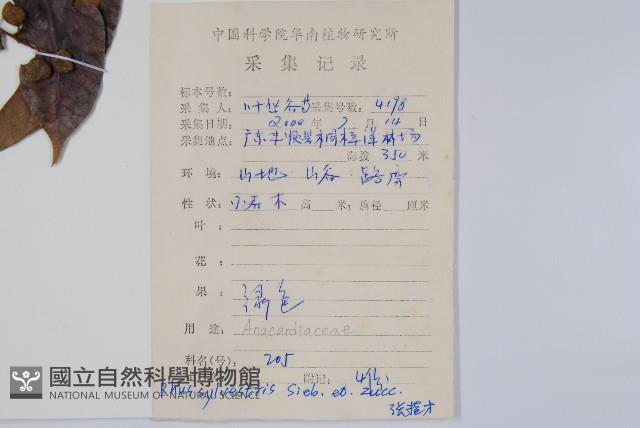 中国科学院华南植物研究所
采集记录
标本号数:
采集人: 叶华谷 采集号数: 4198
采集日期: 2000年 7月 14日
采集地点: 广东丰顺县桐梓洋林场
海拔 350 米
环境: 山地 山谷 路旁
性状: 小乔木 高 米; 胸径 厘米
叶:
花:
果: 绿色
用途: Anacardiaceae
科名(号): 205
附记: 4份
Rhus sylvestris Sieb. et. Zucc.
國立自然科學博物館
NATIONAL MUSEUM OF NATURAL SCIENCE